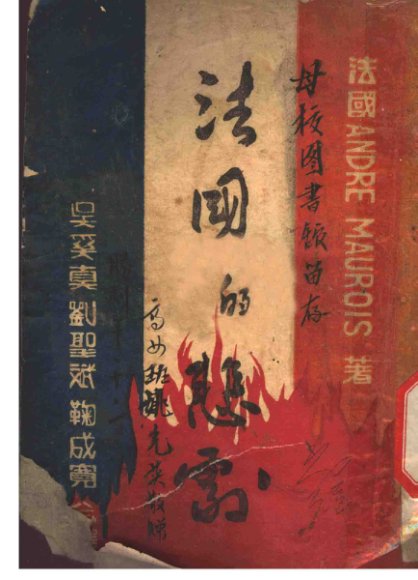 法國 ANDRE MAUROIS 著
母校图書館留存
法國的悲劇
高女班姚光英敬贈
吳奚真 劉聖斌 鞠成寬